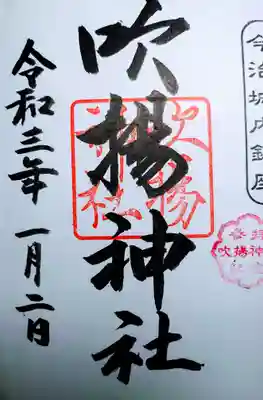 今治城内鎮座
参拝
吹揚神
吹揚神社
吹揚
神社
令和三年 一月二日